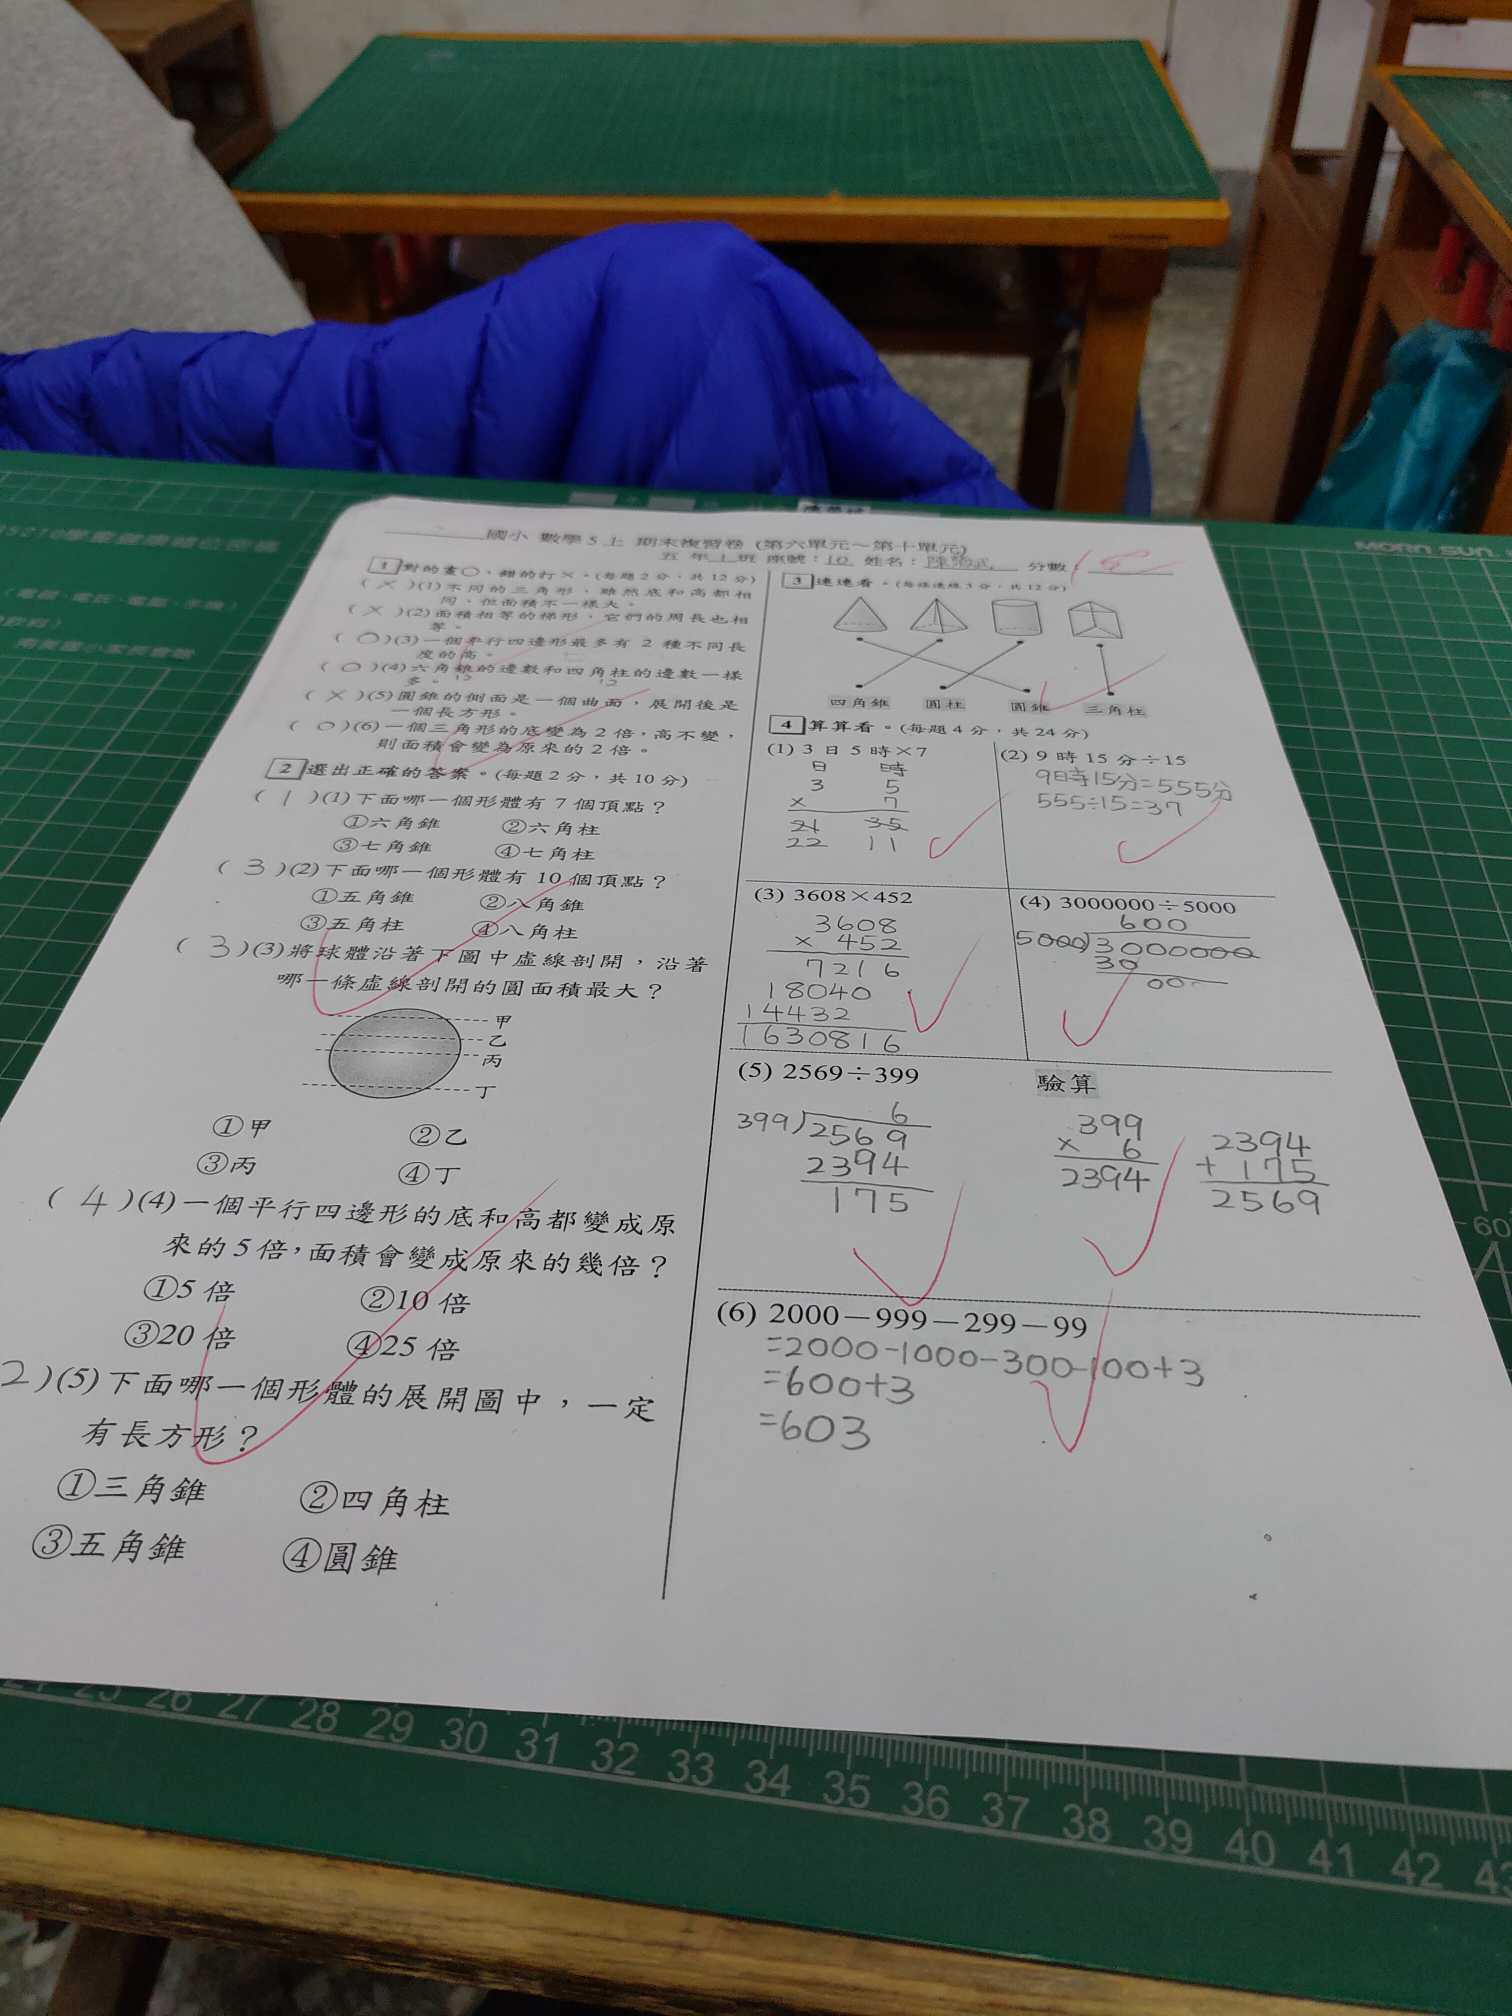 國小 數學5上 期末複習卷 (第六單元～第十單元)
五年1班 座號:10 姓名: 分數:
1 對的畫○，錯的打×。(每題2分，共12分)
(×)(1)不同的三角形，雖然底和高都相
同，但面積不一樣大。
(×)(2)面積相等的梯形，它們的周長也相
等。
(○)(3)一個平行四邊形最多有2種不同長
度的高。
(○)(4)六角錐的邊數和四角柱的邊數一樣
多。12 12
(×)(5)圓錐的側面是一個曲面，展開後是
一個長方形。
(○)(6)一個三角形的底變為2倍，高不變，
則面積會變為原來的2倍。
2 選出正確的答案。(每題2分，共10分)
(1)(1)下面哪一個形體有7個頂點？
①六角錐 ②六角柱
③七角錐 ④七角柱
(3)(2)下面哪一個形體有10個頂點？
①五角錐 ②八角錐
③五角柱 ④八角柱
(3)(3)將球體沿著下圖中虛線剖開，沿著
哪一條虛線剖開的圓面積最大？
甲
乙
丙
丁
①甲 ②乙
③丙 ④丁
(4)(4)一個平行四邊形的底和高都變成原
來的5倍，面積會變成原來的幾倍？
①5倍 ②10倍
③20倍 ④25倍
2)(5)下面哪一個形體的展開圖中，一定
有長方形？
①三角錐 ②四角柱
③五角錐 ④圓錐
3 連連看。(每條連線3分，共12分)
四角錐 圓柱 圓錐 三角柱
4 算算看。(每題4分，共24分)
(1) 3日5時×7
日 時
3 5
× 7
21 35
22 11
(2) 9時15分÷15
9時15分=555分
555÷15=37
(3) 3608×452
3608
× 452
7216
18040
14432
1630816
(4) 3000000÷5000
600
5000)3000000
30
00
(5) 2569÷399
6
399)2569
2394
175
驗算
399
× 6
2394
2394
+ 175
2569
(6) 2000－999－299－99
=2000-1000-300-100+3
=600+3
=603
MORN SUN
25 26 27 28 29 30 31 32 33 34 35 36 37 38 39 40 41 42 43
60